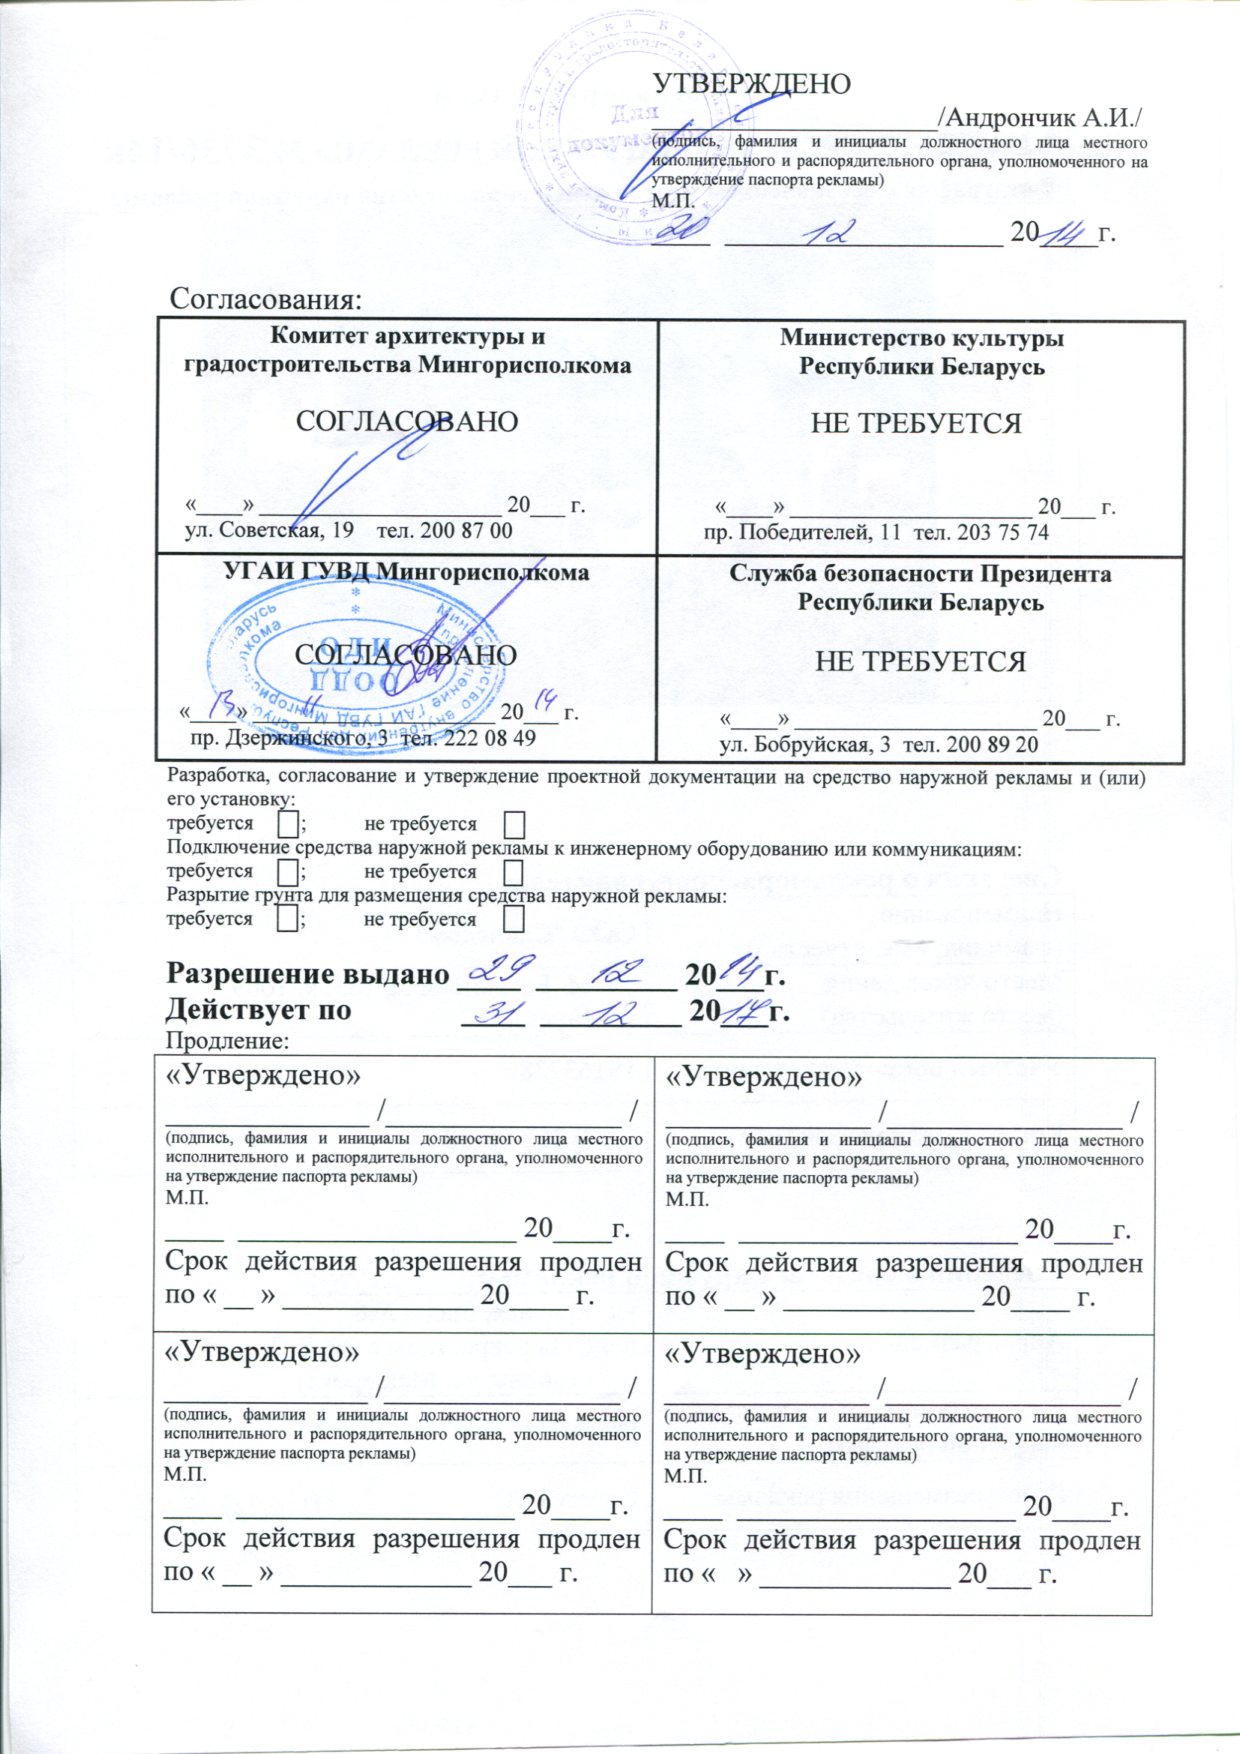 УТВЕРЖДЕНО
____________________/Андрончик А.И./
(подпись, фамилия и инициалы должностного лица местного
исполнительного и распорядительного органа, уполномоченного на
утверждение паспорта рекламы)
М.П.
20 12 2014г.
Согласования:
Комитет архитектуры и
градостроительства Мингорисполкома
СОГЛАСОВАНО
«____» ____________________ 20___ г.
ул. Советская, 19 тел. 200 87 00
Министерство культуры
Республики Беларусь
НЕ ТРЕБУЕТСЯ
«____» ____________________ 20___ г.
пр. Победителей, 11 тел. 203 75 74
УГАИ ГУВД Мингорисполкома
СОГЛАСОВАНО
«13» 11 2014 г.
пр. Дзержинского, 3 тел. 222 08 49
ОДИ
ООДД
Служба безопасности Президента
Республики Беларусь
НЕ ТРЕБУЕТСЯ
«____» ____________________ 20___ г.
ул. Бобруйская, 3 тел. 200 89 20
Разработка, согласование и утверждение проектной документации на средство наружной рекламы и (или)
его установку:
требуется ; не требуется
Подключение средства наружной рекламы к инженерному оборудованию или коммуникациям:
требуется ; не требуется
Разрытие грунта для размещения средства наружной рекламы:
требуется ; не требуется
Разрешение выдано 29 12 2014г.
Действует по 31 12 2017г.
Продление:
«Утверждено»
______________ /________________ /
(подпись, фамилия и инициалы должностного лица местного
исполнительного и распорядительного органа, уполномоченного
на утверждение паспорта рекламы)
М.П.
____ ___________________ 20____г.
Срок действия разрешения продлен
по « __ » _____________ 20____ г.
«Утверждено»
______________ /________________ /
(подпись, фамилия и инициалы должностного лица местного
исполнительного и распорядительного органа, уполномоченного
на утверждение паспорта рекламы)
М.П.
____ ___________________ 20____г.
Срок действия разрешения продлен
по « __ » _____________ 20____ г.
«Утверждено»
______________ /________________ /
(подпись, фамилия и инициалы должностного лица местного
исполнительного и распорядительного органа, уполномоченного
на утверждение паспорта рекламы)
М.П.
____ ___________________ 20____г.
Срок действия разрешения продлен
по « __ » _____________ 20___ г.
«Утверждено»
______________ /________________ /
(подпись, фамилия и инициалы должностного лица местного
исполнительного и распорядительного органа, уполномоченного
на утверждение паспорта рекламы)
М.П.
____ ___________________ 20____г.
Срок действия разрешения продлен
по « » _____________ 20___ г.